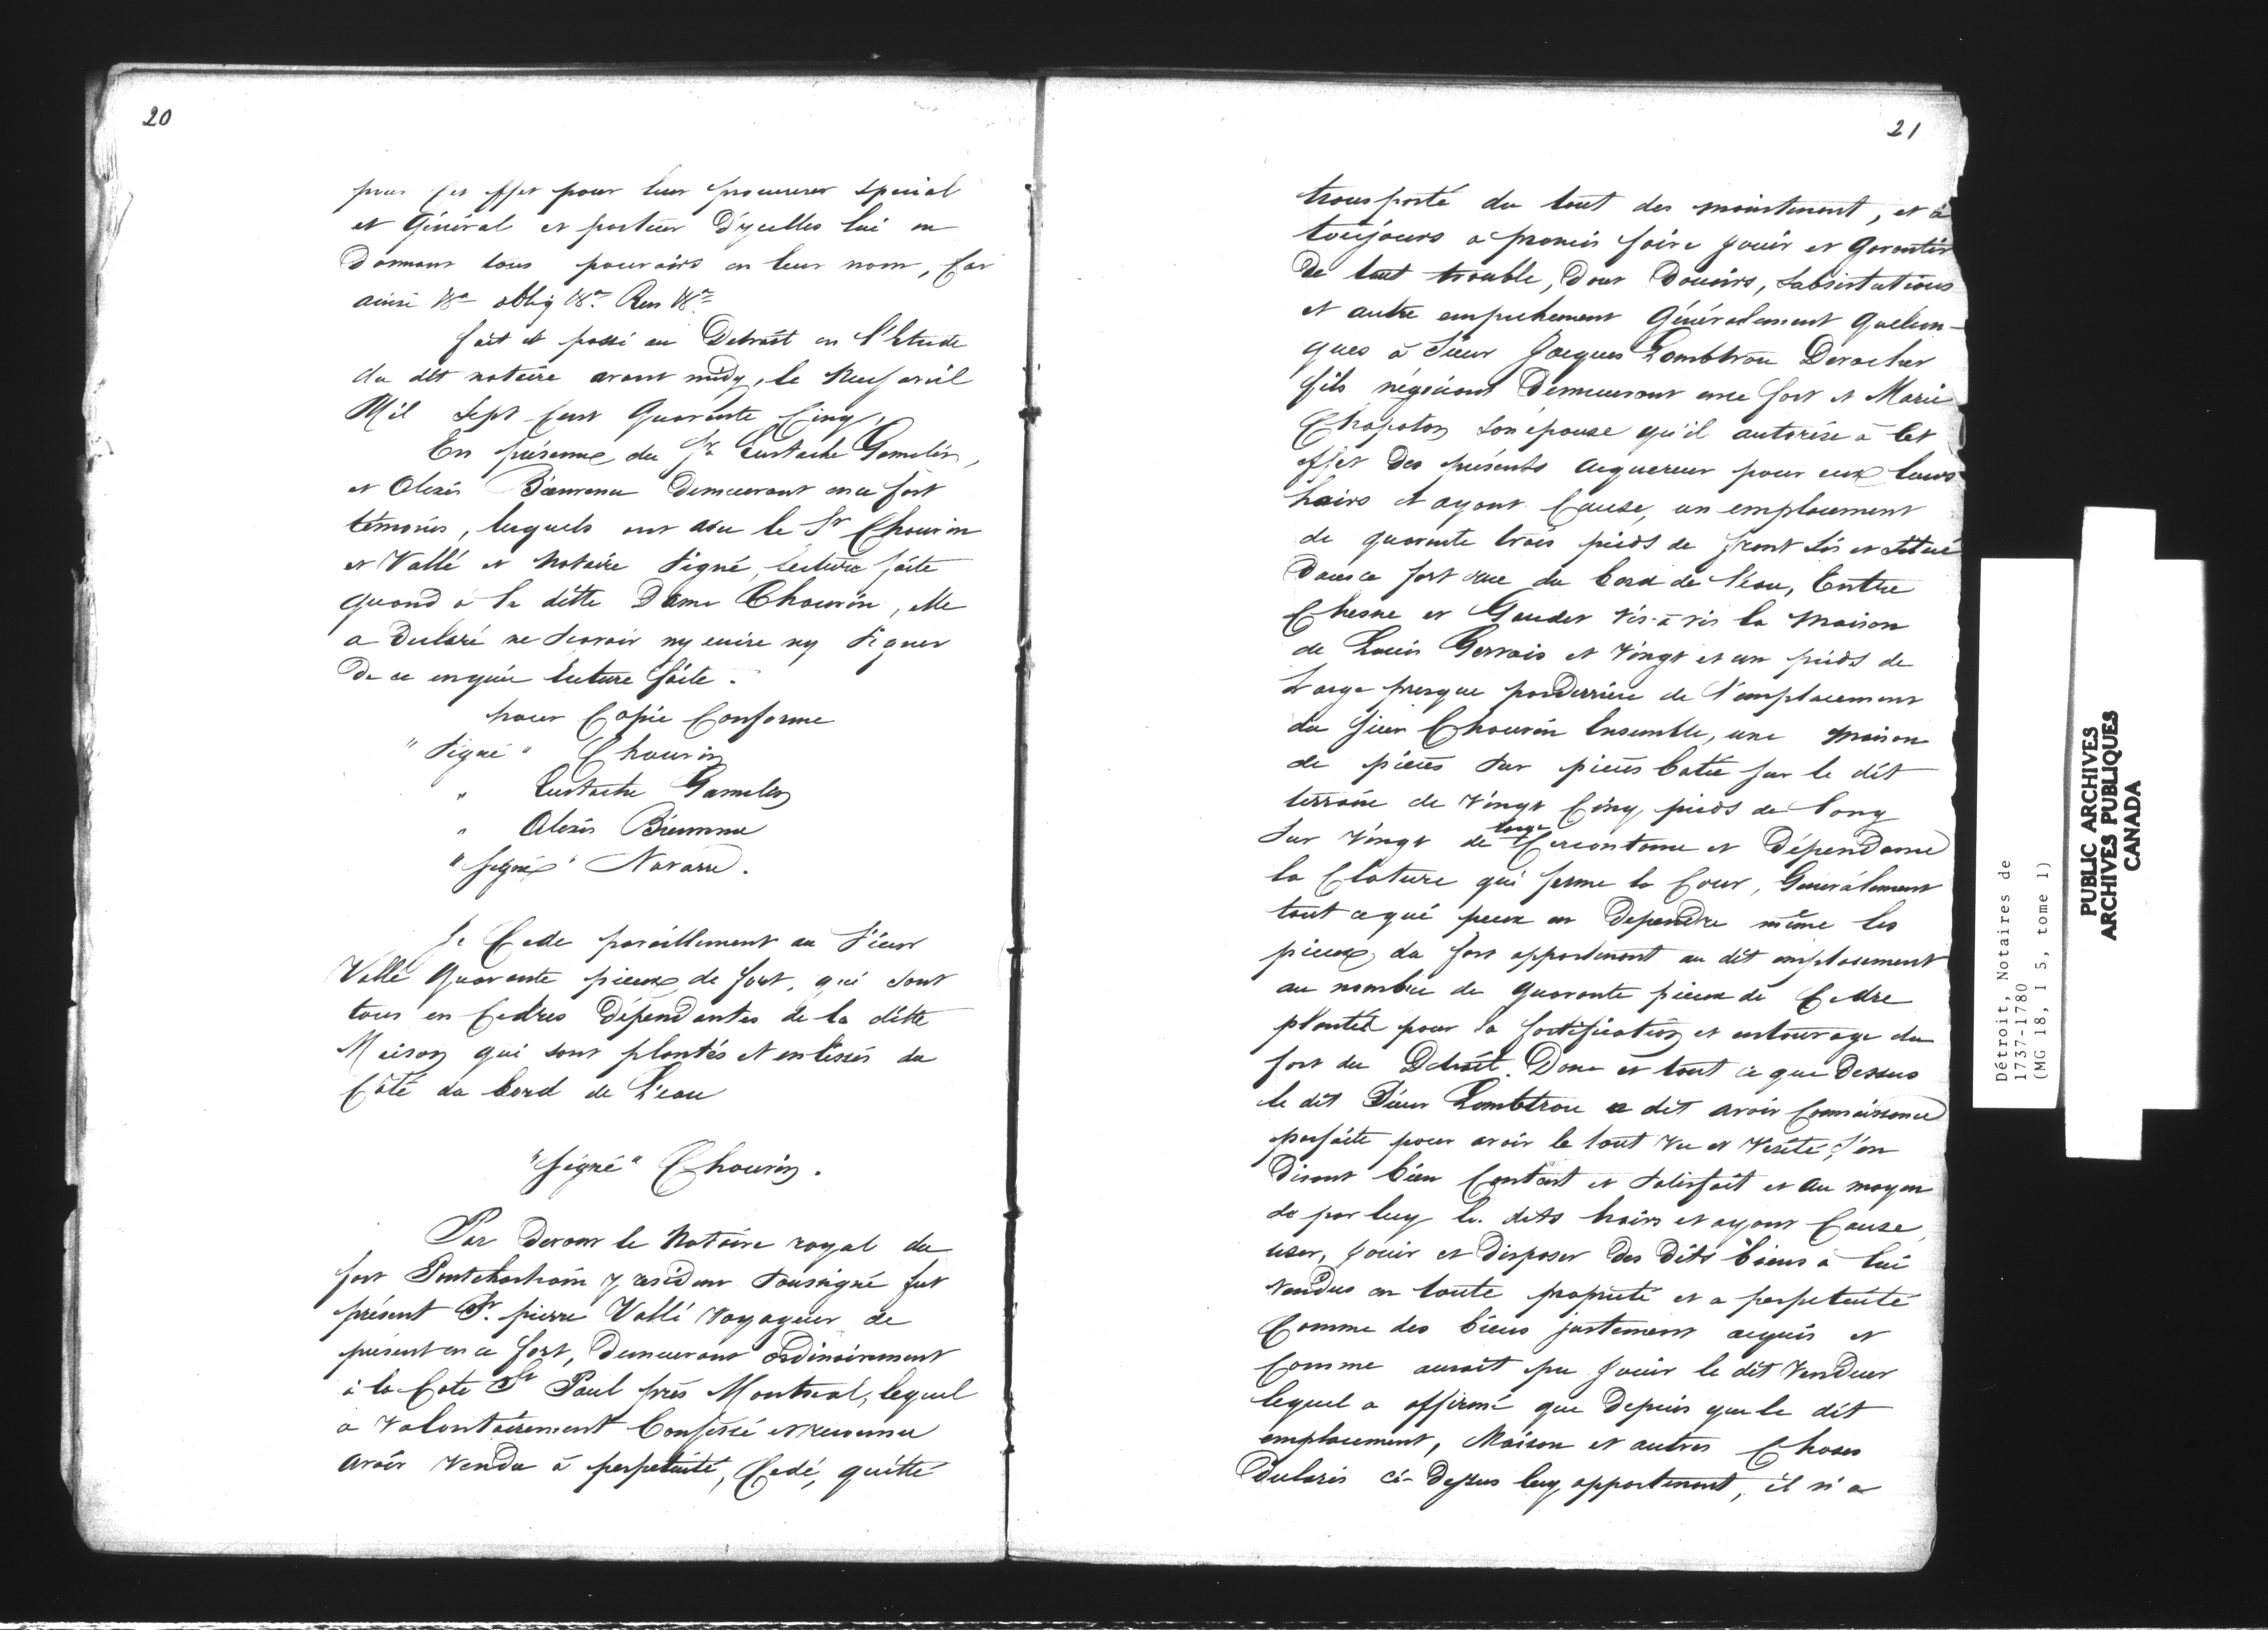 20
pour cet effet pour leur procureur special
et Général et porteur D'ycelles lui en
Donnant tous pouvoirs en leur nom, Car
ainsi &a oblig &a Ren &a
fait et passé au Detroit en l'Etude
du dit notaire avant midy, le Neuf avril
Mil Sept Cent Quarante Cinq,
En présence du Sr Eustache Gamelin,
et Alexis Bienvenu Demeurant en ce fort
témoins, lesquels ont avec le Sr Chauvin
et Vallé et Notaire Signé, lecture faite
quand à la ditte Dame Chauvin, elle
a Declaré ne Scavoir ny ecrire ny Signer
De ce enquise lecture faite.
pour Copie Conforme
"Signé" Chauvin
" Eustache Gamelin
" Alexis Bienvenu
"Signé" Navarre.
Je Cede pareillement au Sieur
Vallé Quarante pieux de fort, qui sont
tous en Cedres Dépendantes de la ditte
Maison qui sont plantés et enlissés du
Côté du bord de L'eau
"Signé" Chauvin.
Par devant le Notaire royal du
fort Pontchartrain y résident Soussigné fut
présent Sr. pierre Vallé Voyageur de
présent en ce fort, Demeurant ordinairement
à la Cote St Paul près Montreal, lequel
a Volontairement Confessé et reconnu
avoir Vendu à perpetuité, Cedé, quitté
21
transporté du tout des maintenant, et à
toujours a promis faire jouir et Garantir
De tout trouble, Dont Douairs, Subsistutions
et autre empechement Généralement Quelcon-
ques à Sieur Jacques Lambtrou Derocher
fils négociant Demeurant en ce fort et Marie
Chapoton son épouse qu'il autorise à Cet
effet Des présents acquereur pour eux leurs
hoirs et ayant Cause, un emplacement
de quarante trois pieds de front Sis et Situé
Dans ce fort rue du bord de l'eau, Entre
Chesne et Gaudet vis-à-vis la maison
de Louis Gervais et Vingt et un pieds de
Large presque par Derrière de l'emplacement
du Sieur Chauvin Ensemble, une maison
de pieces sur pieces batie sur le dit
terrain de Vingt Cinq pieds de long
Sur Vingt de large Circontance et Dépendance
la Cloture qui ferme la Cour, Generalement
tout ce qui peux en Dependre même les
pieux du fort appartenant au dit emplacement
au nombre de Quarante pieux de Cedre
plantés pour la fortification et entourage du
fort du Detroit. Donc et tout ce que Dessus
le dit Sieur Lambtrou a dit avoir Connaissance
parfaite pour avoir le tout Vu et Visité, s'en
Disant bien Content et Satisfait et au moyen
de par luy les dits hoirs et ayant Cause,
user, jouir et Disposer Des Dits biens à lui
Vendus en toute propriété et a perpetuité
Comme des biens justement acquis et
Comme aurait pu jouir le dit Vendeur
lequel a affirmé que Depuis que le dit
emplacement, Maison et autres Choses
Declarés ci-Dessus luy appartenant, il n'a
Détroit, Notaires de
1737-1780
(MG 18, I 5, tome 1)
PUBLIC ARCHIVES
ARCHIVES PUBLIQUES
CANADA